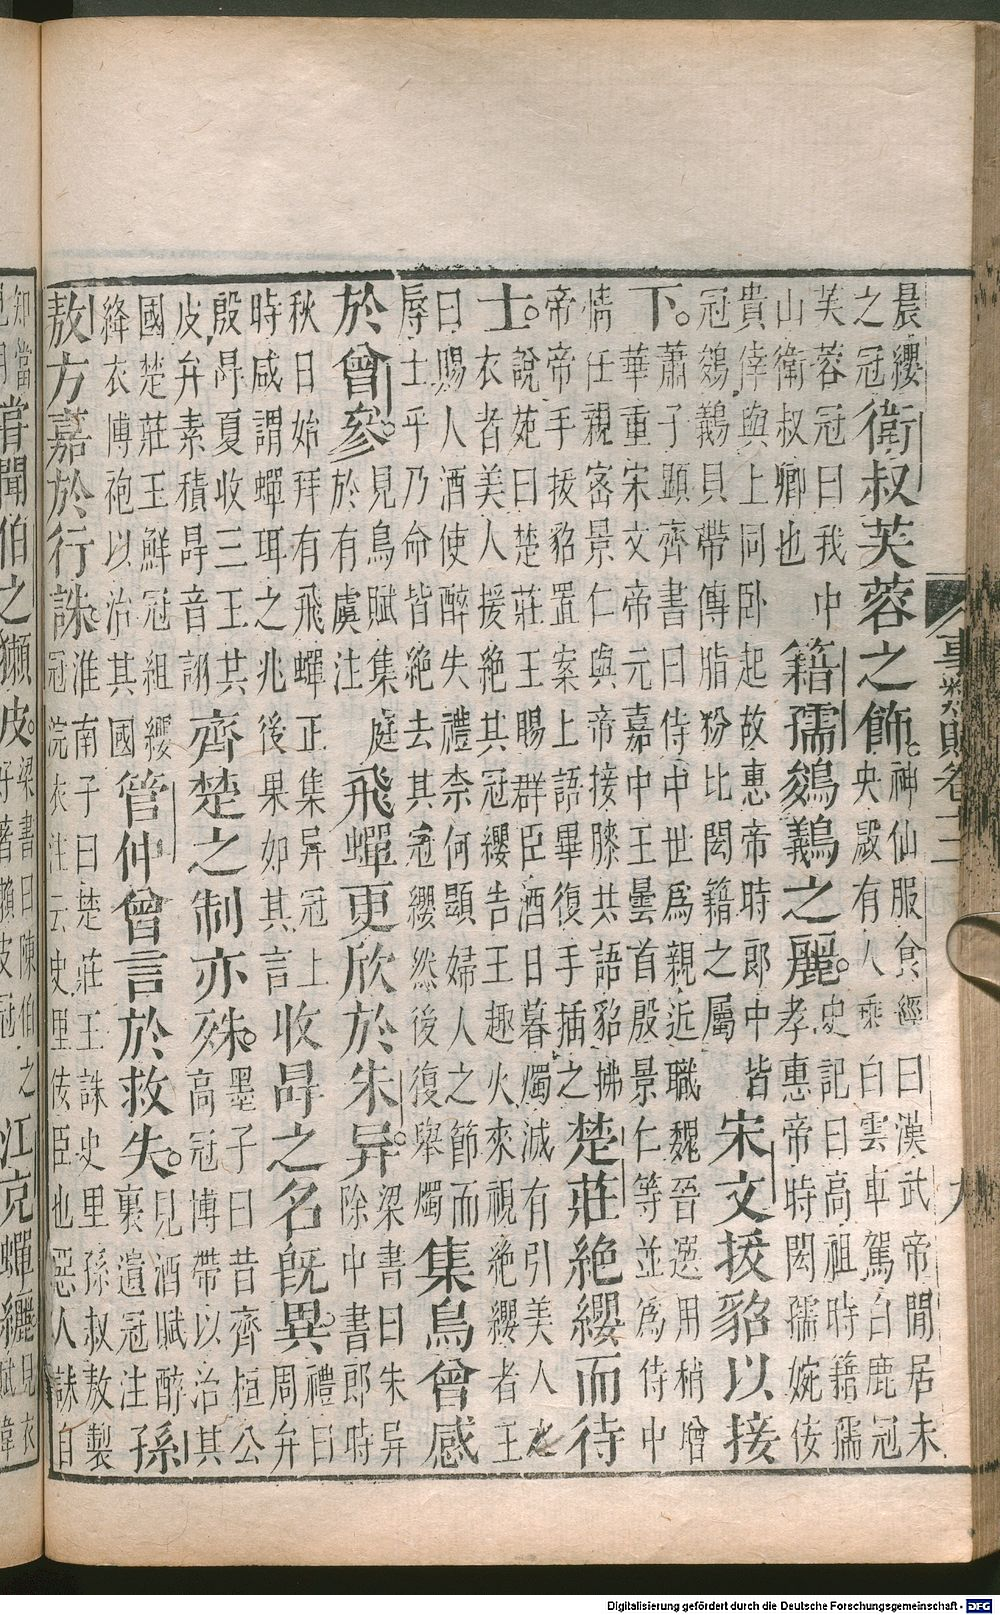 事類賦卷十二
九
晨纓
之冠
衛叔芙蓉之飾。
神仙服食經曰漢武帝閒居未
央殿有人乘白雲車駕白鹿冠
芙蓉冠曰我中
山衛叔卿也
籍孺鵔鸃之麗。
史記曰高祖時籍孺
孝惠帝時閎孺婉佞
貴倖與上同卧起故惠帝時郎中皆
冠鵔鸃貝帶傅脂粉比閎籍之屬
宋文拔貂以接
下。
蕭子顯齊書曰侍中世為親近職魏晉選用稍增
華重宋文帝元嘉中王曇首殷景仁等並為侍中
情任親密景仁與帝接膝共語貂拂
帝帝手拔貂置案上語畢復手插之
楚莊絕纓而待
士。
說苑曰楚莊王賜群臣酒日暮燭滅有引美人之
衣者美人援絕其冠纓告王趣火來視絕纓者王
曰賜人酒使醉失禮柰何顯婦人之節而
辱士乎乃命皆絕去其冠纓然後復舉燭
集鳥曾感
於曾參。
見鳥賦集庭
於有虞注
飛蟬更欣於朱异。
梁書曰朱异
除中書郎時
秋日始拜有飛蟬正集异冠上
時咸謂蟬珥之兆後果如其言
收冔之名既異。
禮曰
周弁
殷冔夏收三王共
皮弁素積冔音詡
齊楚之制亦殊。
墨子曰昔齊桓公
高冠博帶以治其
國楚莊王鮮冠組纓
絳衣博袍以治其國
管仲曾言於救失。
見酒賦醉
裏遺冠注
孫
敖方嘉於行誅。
淮南子曰楚莊王誅史里孫叔敖製
冠浣衣注云史里佞臣也惡人誅自
知當
嘗聞伯之獺皮。
梁書曰陳伯之
好著獺皮冠
江充蟬纚
見衣
Digitalisierung gefördert durch die Deutsche Forschungsgemeinschaft - DFG